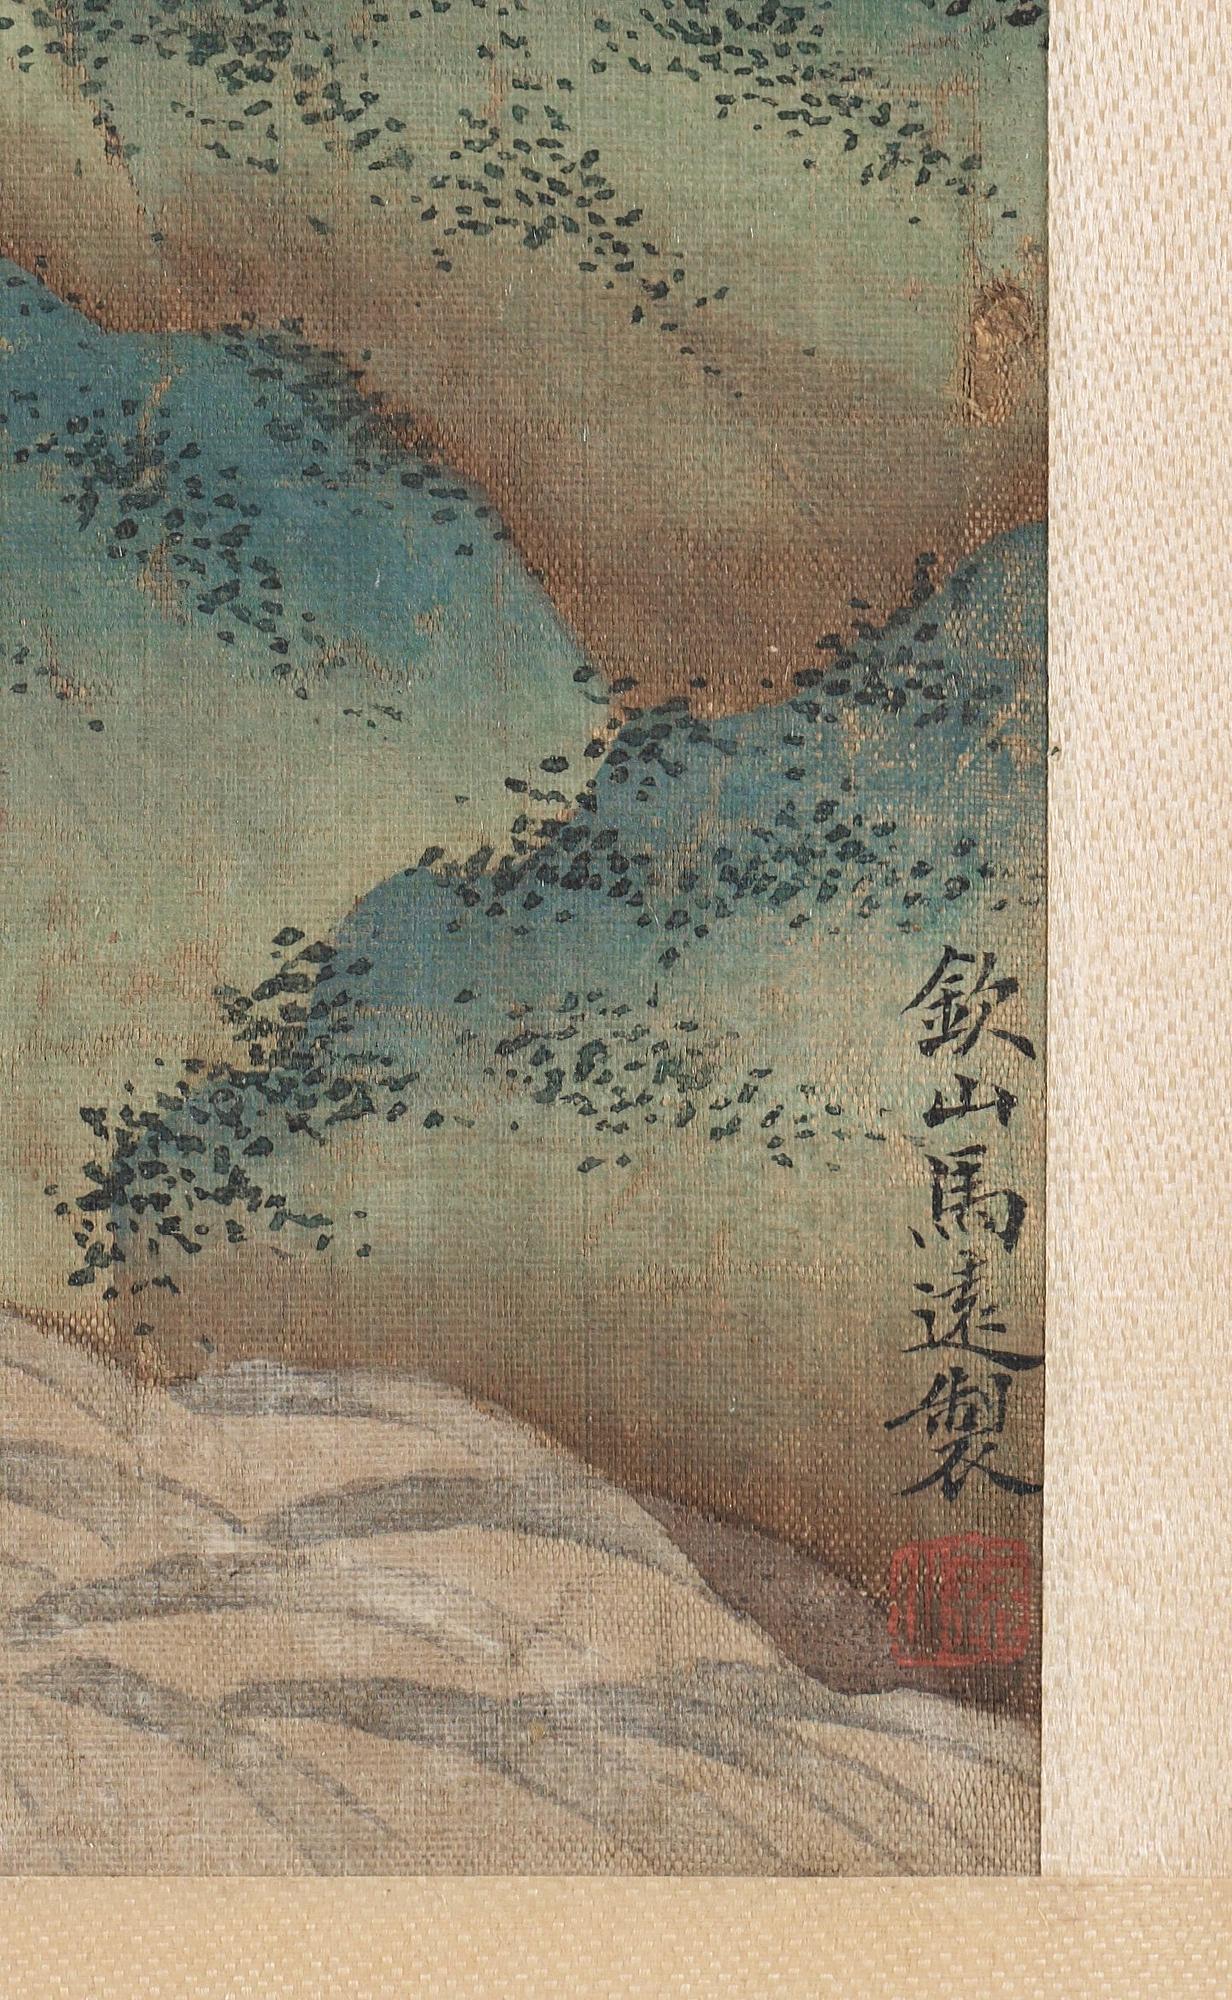 欽山馬遠製